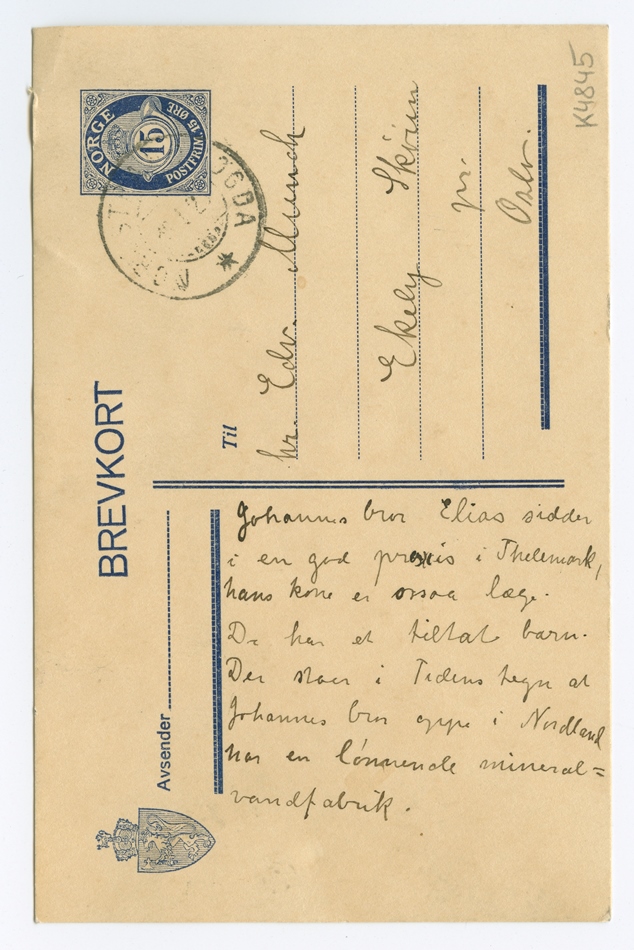 K4845
NORGE
15
POSTFRIM. 15 ØRE
OGDA
NOR
BREVKORT
Til
hr. Edv. Munch
Ekely Skøien
pr.
Oslo.
Avsender
Johannes bror Elias sidder
i en god praxis i Thelemark,
hans kone er ossaa læge.
De har et tiltat barn.
Der staar i Tidens tegn at
Johannes bror oppe i Nordland
har en lønnende mineral=
vandfabrik.